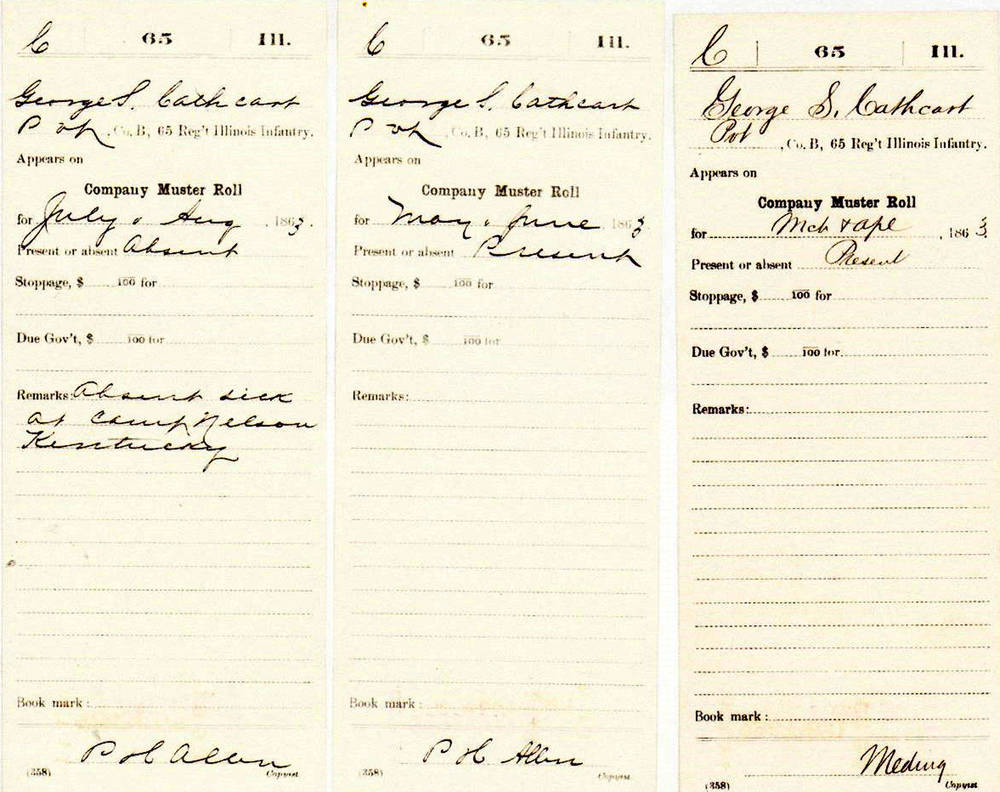 C | 65 | Ill.
George S. Cathcart
Pvt, Co. B, 65 Reg't Illinois Infantry.
Appears on
Company Muster Roll
for July & Aug, 1863.
Present or absent Absent
Stoppage, $ 100 for
Due Gov't, $ 100 for
Remarks: Absent sick
at Camp Nelson
Kentucky
Book mark:
P H Allen
(358) Copyist
C | 65 | Ill.
George S. Cathcart
Pvt, Co. B, 65 Reg't Illinois Infantry.
Appears on
Company Muster Roll
for May & June 1863
Present or absent Present
Stoppage, $ 100 for
Due Gov't, $ 100 for
Remarks:
Book mark:
P H Allen
(358) Copyist
C | 65 | Ill.
George S. Cathcart
Pvt, Co. B, 65 Reg't Illinois Infantry.
Appears on
Company Muster Roll
for Mch & Apl, 1863.
Present or absent Present
Stoppage, $ 100 for
Due Gov't, $ 100 for
Remarks:
Book mark:
Meding
(358) Copyist